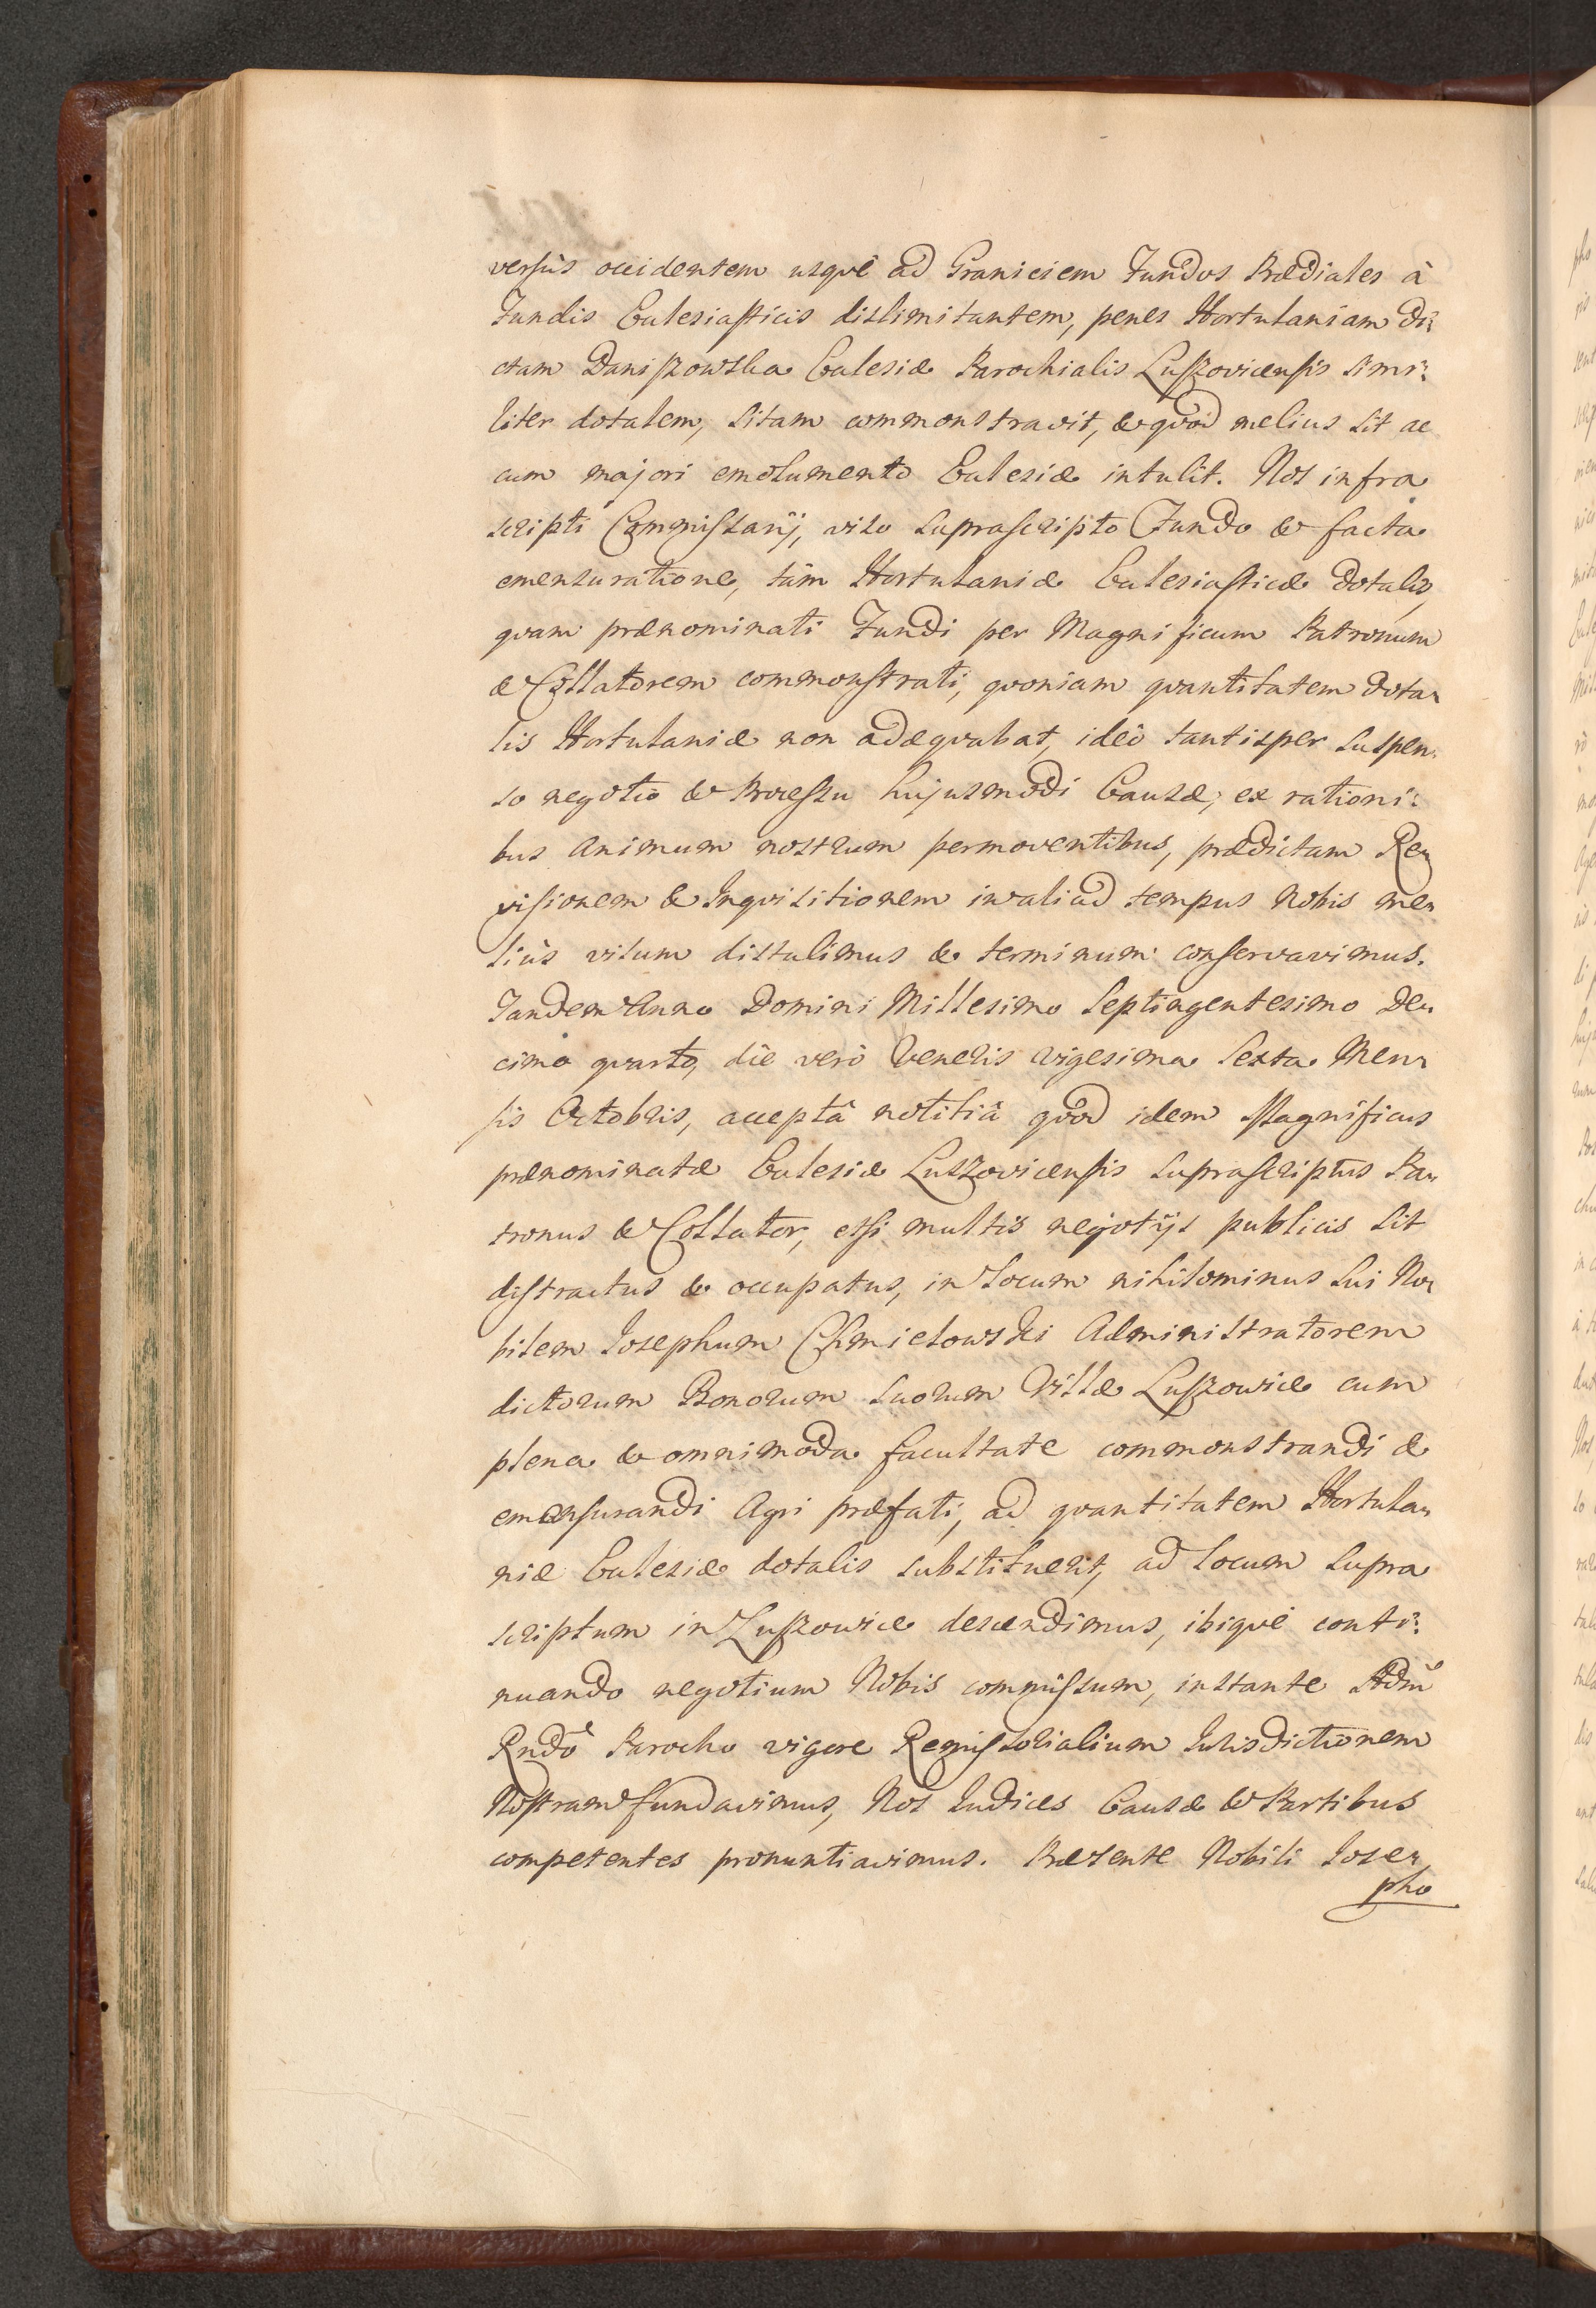 versùs occidentem usquè ad Graniciem Fundos Prædiales à
Fundis Ecclesiasticis dislimitantem, penes Hortulaniam di:
ctam Daniszowska Ecclesiæ Parochialis Luszovicensis simi:
liter dotalem, sitam commonstravit, & quòd melius sit ac
cum majori emolumento Ecclesiæ intulit. Nos infra
scripti Commissarij, viso suprascripto Fundo & facta
emensuratione, tàm Hortulaniæ Ecclesiasticæ dotalis,
quam prænominati Fundi per Magnificum Patronum
& Collatorem commonstrati, quoniam quantitatem dota-
lis Hortulaniæ non adæquabat, ideò tantisper suspen-
so negotio & Processu hujusmodi Causæ, ex rationi:
bus animum nostrum permoventibus, prædictam Re-
visionem & Inquisitionem in aliud tempus Nobis me-
liùs visum distulimus & terminum conservavimus.
Tandem Anno Domini Millesimo Septingentesimo De-
cimo quarto, die verò Veneris vigesima Sexta Men-
sis Octobris, acceptâ notitiâ quòd idem Magnificus
prænominatæ Ecclesiæ Luszovicensis suprascriptus Pa-
tronus & Collator, etsi multis negotijs publicis sit
distractus & occupatus, in locum nihilominus sui No-
bilem Josephum Chmielowski Administratorem
dictorum Bonorum suorum Villæ Luszowice cum
plena & omnimoda facultate commonstrandi &
emensurandi Agri præfati, ad quantitatem Hortula-
niæ Ecclesiæ dotalis substituerit, ad locum supra
scriptum in Luszowice descendimus, ibiquè conti:
nuando negotium Nobis commissum, instante Admo
Rndo Parocho vigore Remissorialium Jurisdictionem
Nostram fundavimus, Nos Judices Causæ & Partibus
competentes pronuntiavimus. Præsente Nobili Jose-
pho